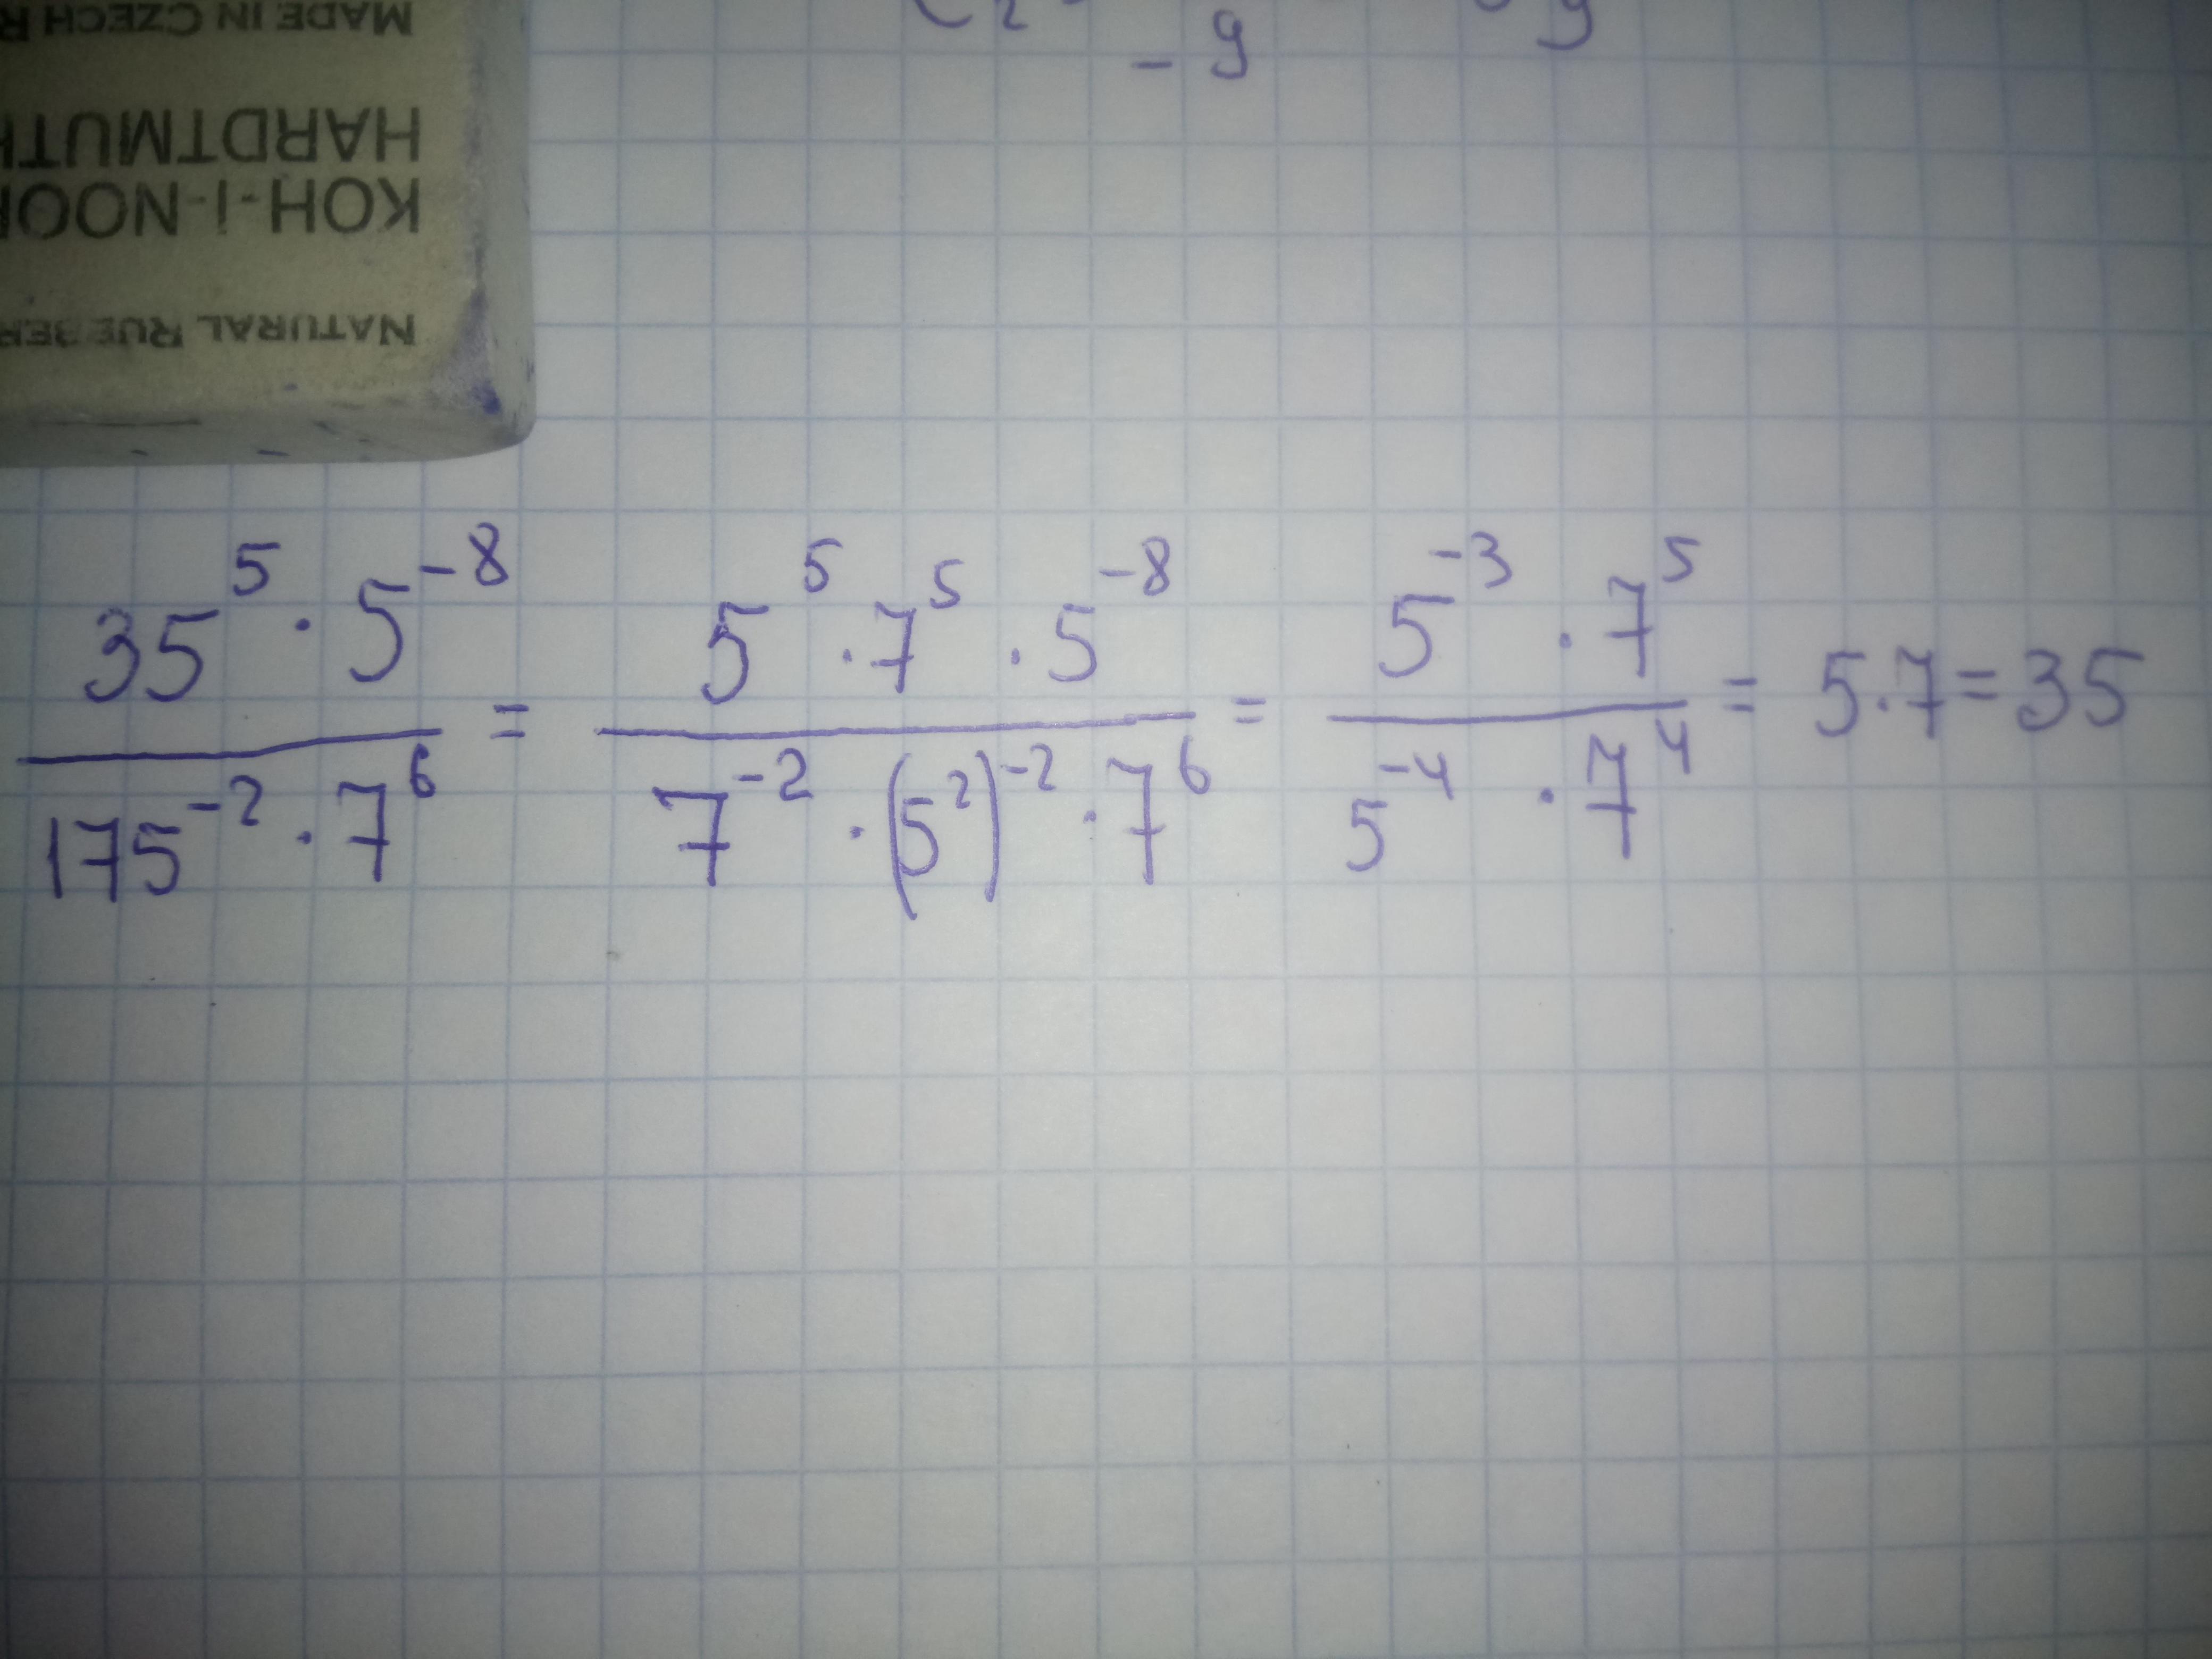 MADE IN CZECH
HARDTMUTH
KOH-I-NOOR
NATURAL RUBBER
- 9
35^5 · 5^-8 / 175^-2 · 7^6 = 5^5 · 7^5 · 5^-8 / 7^-2 · (5^2)^-2 · 7^6 = 5^-3 · 7^5 / 5^-4 · 7^4 = 5·7=35